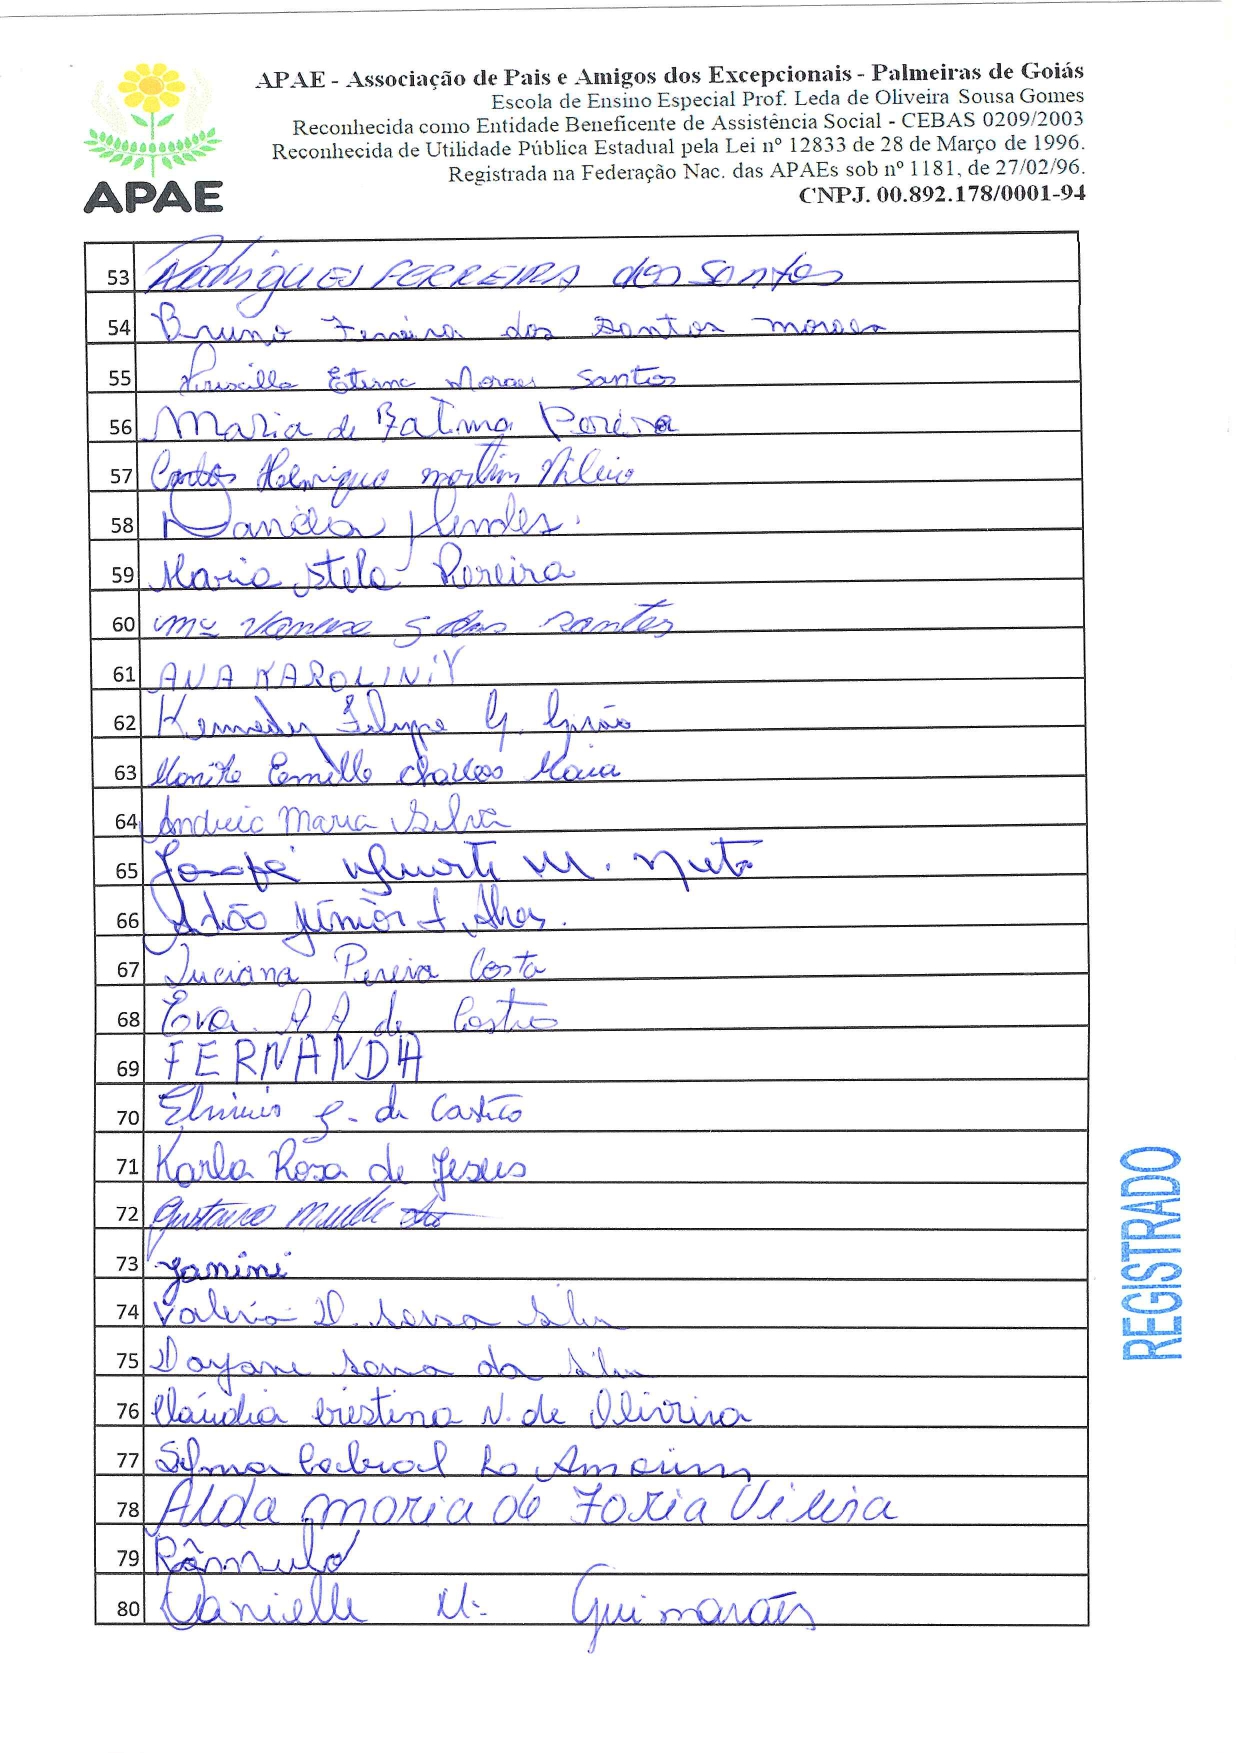 APAE - Associação de Pais e Amigos dos Excepcionais - Palmeiras de Goiás
Escola de Ensino Especial Prof. Leda de Oliveira Sousa Gomes
Reconhecida como Entidade Beneficente de Assistência Social - CEBAS 0209/2003
Reconhecida de Utilidade Pública Estadual pela Lei nº 12833 de 28 de Março de 1996.
Registrada na Federação Nac. das APAEs sob nº 1181, de 27/02/96.
CNPJ. 00.892.178/0001-94
APAE
53 Rodrigues FERREIRA dos Santos
54 Bruno Ferreira dos Santos Moraes
55 Priscilla Eterna Moraes Santos
56 Maria de Fatima Pereira
57 Carlos Henrique Martim
58 Mendes.
59 Maria Stela Pereira
60 Santos
61 ANA KAROLINY
62 Filype G.
63 Charles Maia
64 Andreia Maria Silva
65 M. Neto
66 Adão Júnior
67 Luciana Pereira Costa
68 Eva A A de Castro
69 FERNANDA
70 de Castro
71 Karla Rosa de Jesus
72 Gustavo
73 Janini
74 Valéria D. Sena Silva
75 Dayane Sena da Silva
76 Cláudia Cristina N. de Oliveira
77 Selma Cabral Amorim
78 Alda Maria de Faria Vieira
79 Rômulo
80 Danielle M. Guimarães
REGISTRADO